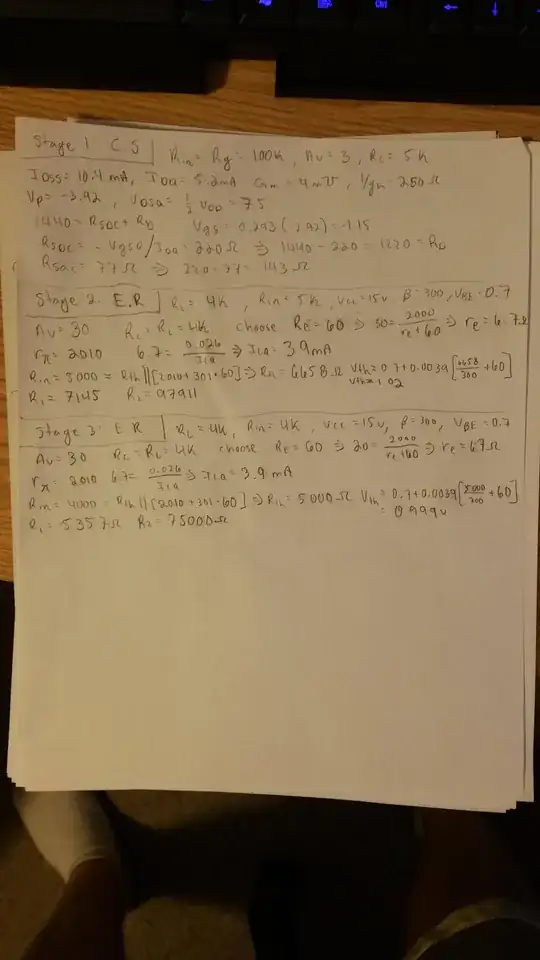 Stage 1 CS | Rin = Rg = 100K, Av = 3, RL = 5K
IDSS = 10.4 mA, IDQ = 5.2mA Gm = 4m℧, 1/gm = 250 Ω
Vp = -3.92, VDSQ = 1/2 VDD = 7.5
1440 = RSDC + RD VGS = 0.293( 3.92) = -1.15
RSDC = - VgSQ/IDQ = 220Ω ⇒ 1440 - 220 = 1220 = RD
RSac = 77Ω ⇒ 220-77 = 143Ω
Stage 2. E.R | RL = 4K, Rin = 5K, Vcc = 15v β = 300, VBE = 0.7
Av = 30 Rc = RL = 4K choose RE = 60 ⇒ 30 = 2000/re+60 ⇒ re = 6.7Ω
rπ = 2010 6.7 = 0.026/ICQ ⇒ ICQ = 3.9mA
Rin = 5000 = Rth||[2010+301·60] ⇒ Rth = 6658Ω Vth = 0.7+0.0039[6658/300 + 60]
Vth = 1.02
R1 = 7145 R2 = 97911
Stage 3: E R | RL = 4K, Rin = 4K, Vcc = 15v, β = 300, VBE = 0.7
Av = 30 Rc = RL = 4K choose RE = 60 ⇒ 30 = 2000/re+60 ⇒ re = 6.7Ω
rπ = 2010 6.7 = 0.026/ICQ ⇒ ICQ = 3.9 mA
Rin = 4000 = Rth||[2010+301·60] ⇒ Rth = 5000Ω Vth = 0.7+0.0039[5000/300 + 60]
= 0.999v
R1 = 5357Ω R2 = 75000Ω